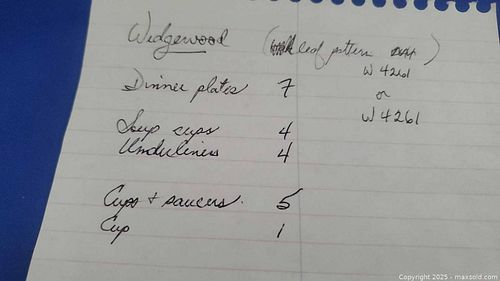 Wedgewood (leaf pattern)
W 4261
or
W 4261
Dinner plates 7
Soup cups 4
Underliners 4
Cups + saucers. 5
Cup 1
Copyright 2025 - maxsold.com